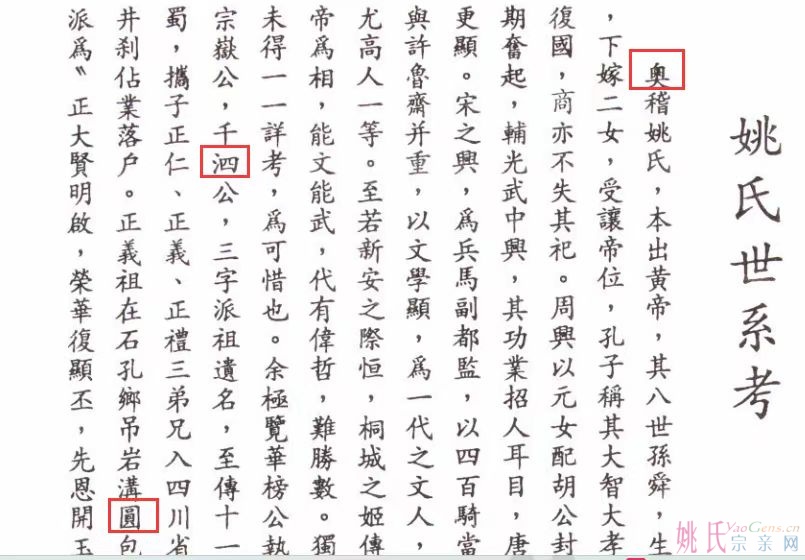 姚氏世系考
奧稽姚氏，本出黄帝，其八世孫舜，生
，下嫁二女，受讓帝位，孔子稱其大智大孝
復國，商亦不失其祀。周興以元女配胡公封
期奮起，輔光武中興，其功業招人耳目，唐
更顯。宋之興，爲兵馬副都監，以四百騎當
與許魯齋并重，以文學顯，爲一代之文人，
尤高人一等。至若新安之際恒，桐城之姬傳
帝爲相，能文能武，代有偉哲，難勝數。獨
未得一一詳考，爲可惜也。余極覽華榜公執
宗嶽公，千泗公，三字派祖遺名，至傳十一
蜀，攜子正仁、正義、正禮三弟兄入四川省
井刹佔業落户。正義祖在石孔鄉吊岩溝圓包
派爲〝正大賢明啟，榮華復顯丕，先恩開玉
姚氏宗亲网
YaoGens.cn